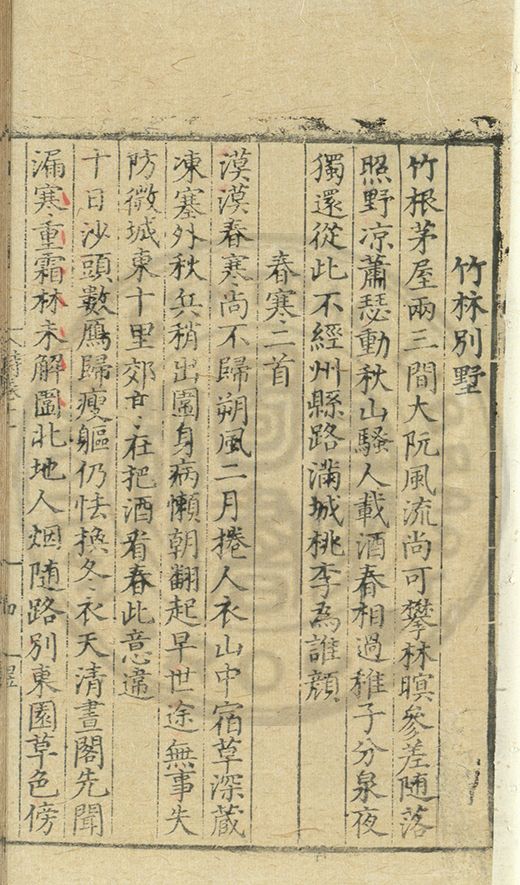 竹林別墅
竹根茅屋兩三間大阮風流尚可攀林暝參差随落
照野凉蕭瑟動秋山騷人載酒春相過稚子分泉夜
獨還從此不經州縣路滿城桃李為誰顔
春寒二首
漠漠春寒尚不歸朔風二月捲人衣山中宿草深藏
凍塞外秋兵稍出圍身病懶朝翻起早世途無事失
防微城東十里郊亭在把酒看春此意違
十日沙頭數鴈歸瘦軀仍怯換冬衣天清晝閣先聞
漏寒重霜林未解圍北地人烟随路別東園草色傍